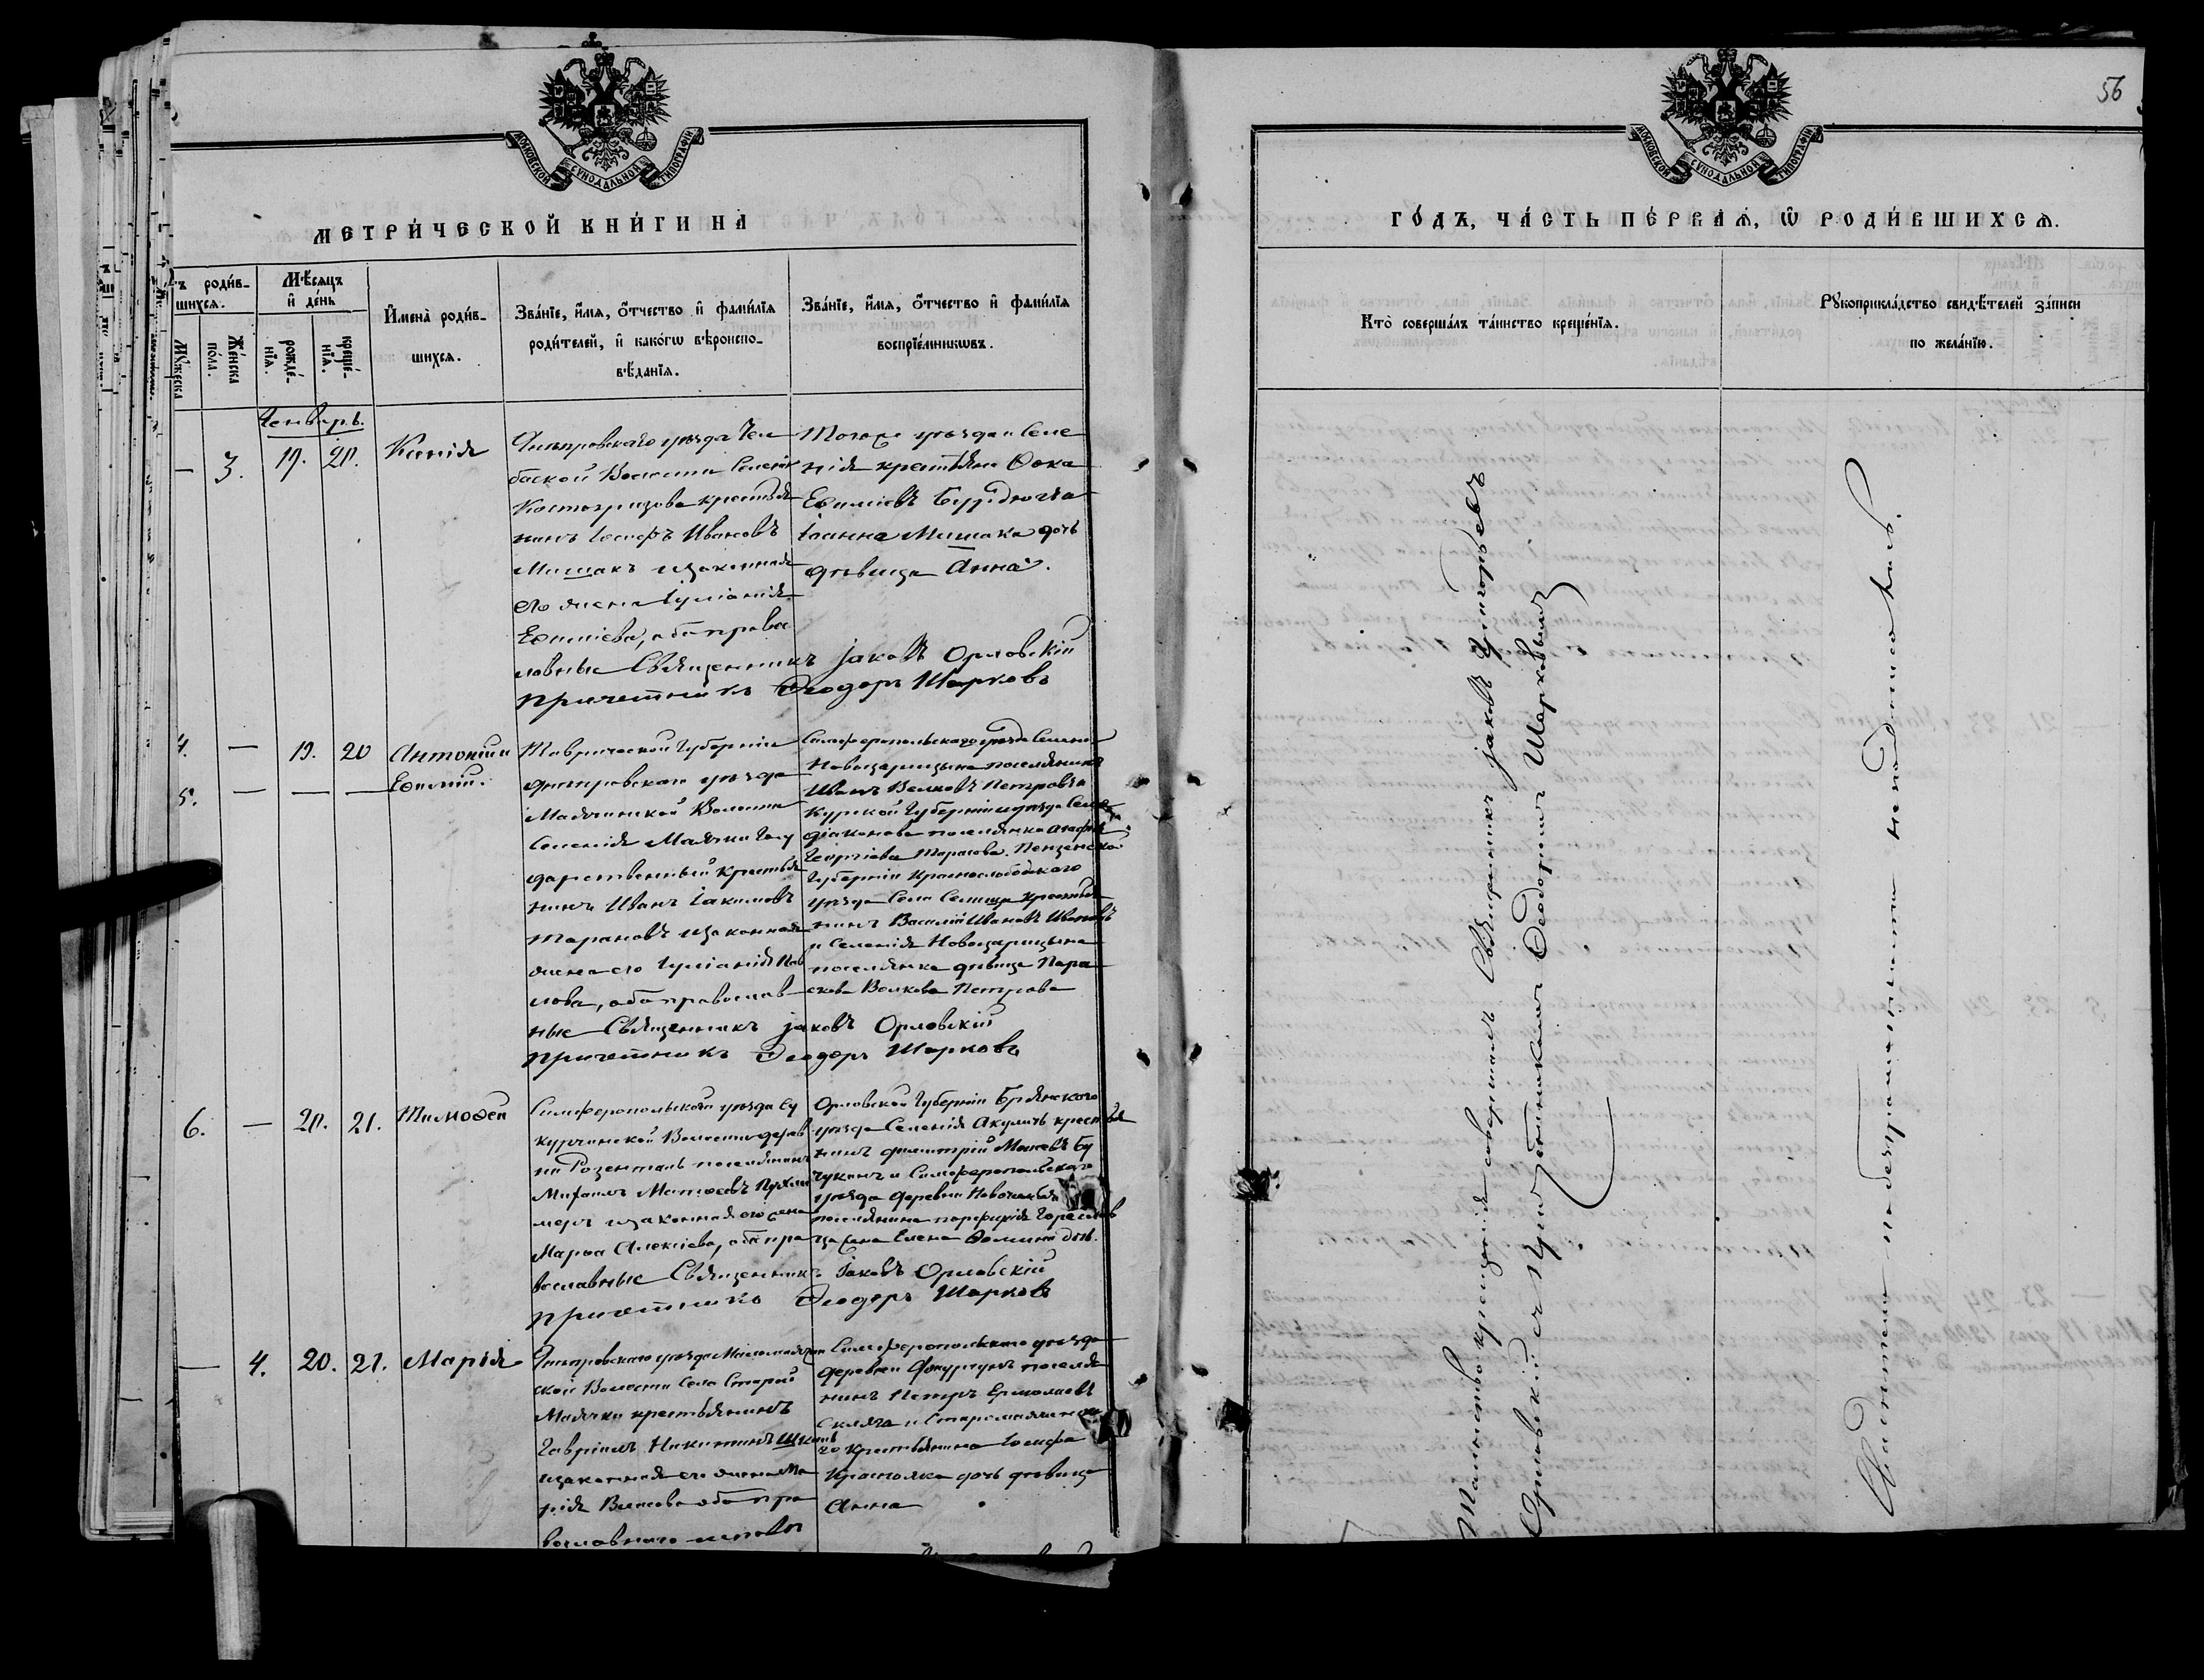 МОСКОВСКОЙ СѴНОДАЛЬНОЙ ТИПОГРАФІИ
МЕТРИ́ЧЕСКОЙ КНИ́ГИ НА
ъ роди́в-
шихсѧ.
Мꙋ́жеска
Же́нска
по́ла.
Мѣ́сѧцъ
и҆ де́нь
рожде́-
нїѧ.
креще́-
нїѧ.
И҆мена̀ роди́в-
шихсѧ.
Зва́нїе, и҆́мѧ, ѻ҆́тчество и҆ фами́лїѧ
роди́телей, и҆ како́гѡ вѣроиспо-
вѣ́данїѧ.
Зва́нїе, и҆́мѧ, ѻ҆́тчество и҆ фами́лїѧ
воспрїе́мникѡвъ.
Генварь.
— 3. 19. 20. Ксенія
Днѣпровскаго уѣзда Чел
баской Волости Селенія
Костогризова крестья
нинъ Іосифъ Ивановъ
Мишакъ изаконная
его жена Іуліанія
Ефиміева, оба право
славные Священникъ Іаковъ Орловскій
Причетникъ Ѳеодоръ Шарковъ
Тогоже уѣзда и Селе
нія крестьянинъ Ѳока
Іоанна Мишака дочь
дѣвица Анна.
4. — 19. 20 Антоній
5. — — — Ефимій.
Таврической Губерніи
Днѣпровскаго уѣзда
Маячинской Волости
Селенія Маячки Госу
дарственный крестья
нинъ Иванъ Іакимовъ
Тарановъ изаконная
жена его Іуліанія Пав
лова, оба православ
ные Священникъ Іаковъ Орловскій
Причетникъ Ѳеодоръ Шарковъ
Симферопольскаго уѣзда Селенія
Новоцарицына поселянинъ
Иванъ Волковъ Петровъ и
Курской Губерніи уѣзда Села
Діаконова поселянка Агафія
Георгіева Тарасова. Пензенской
Губерніи Краснослободскаго
уѣзда Села Селища крестья
нинъ Василій Ивановъ Ивановъ
и Селенія Новоцарицына
поселянка дѣвица Пара
скева Волкова Петрова
6. — 20. 21. Тимоѳей
Симферопольскаго уѣзда
Волости дерев
ни Розенталь поселянинъ
Михаилъ Матѳеевъ
изаконная его жена
Марѳа Алексіева, оба пра
вославные Священникъ Іаковъ Орловскій
Причетникъ Ѳеодоръ Шарковъ
Орловской Губерніи Брянскаго
уѣзда Селенія Акуличъ крестья
нинъ Димитрій
и Симферопольскаго
уѣзда деревни
поселянина Порфирія
жена Елена
— 4. 20. 21. Марія
Днѣпровскаго уѣзда
ской Волости Села Старой
Маячки крестьянинъ
Гавріилъ Никитинъ
изаконная его жена Ма
рія Власова оба пра
вославнаго исповѣ
Симферопольскаго уѣзда
деревни поселя
нинъ Петръ Ермолаевъ
Скляга и Старомаячинска
го крестьянина Іосифа
дочь дѣвица
Анна
56
МОСКОВСКОЙ СѴНОДАЛЬНОЙ ТИПОГРАФІИ
ГО́ДЪ, ЧА́СТЬ ПЕ́РВАѦ, Ѽ РОДИ́ВШИХСѦ.
Кто̀ соверша́лъ та́инство креще́нїѧ.
Рꙋкоприкла́дство свидѣ́телей за́писи
по жела́нїю.
Таинство крещенія совершалъ Священникъ Іаковъ Григорьевъ
Орловскій съ Причетникомъ Ѳеодоромъ Шарковымъ
Свидѣтели